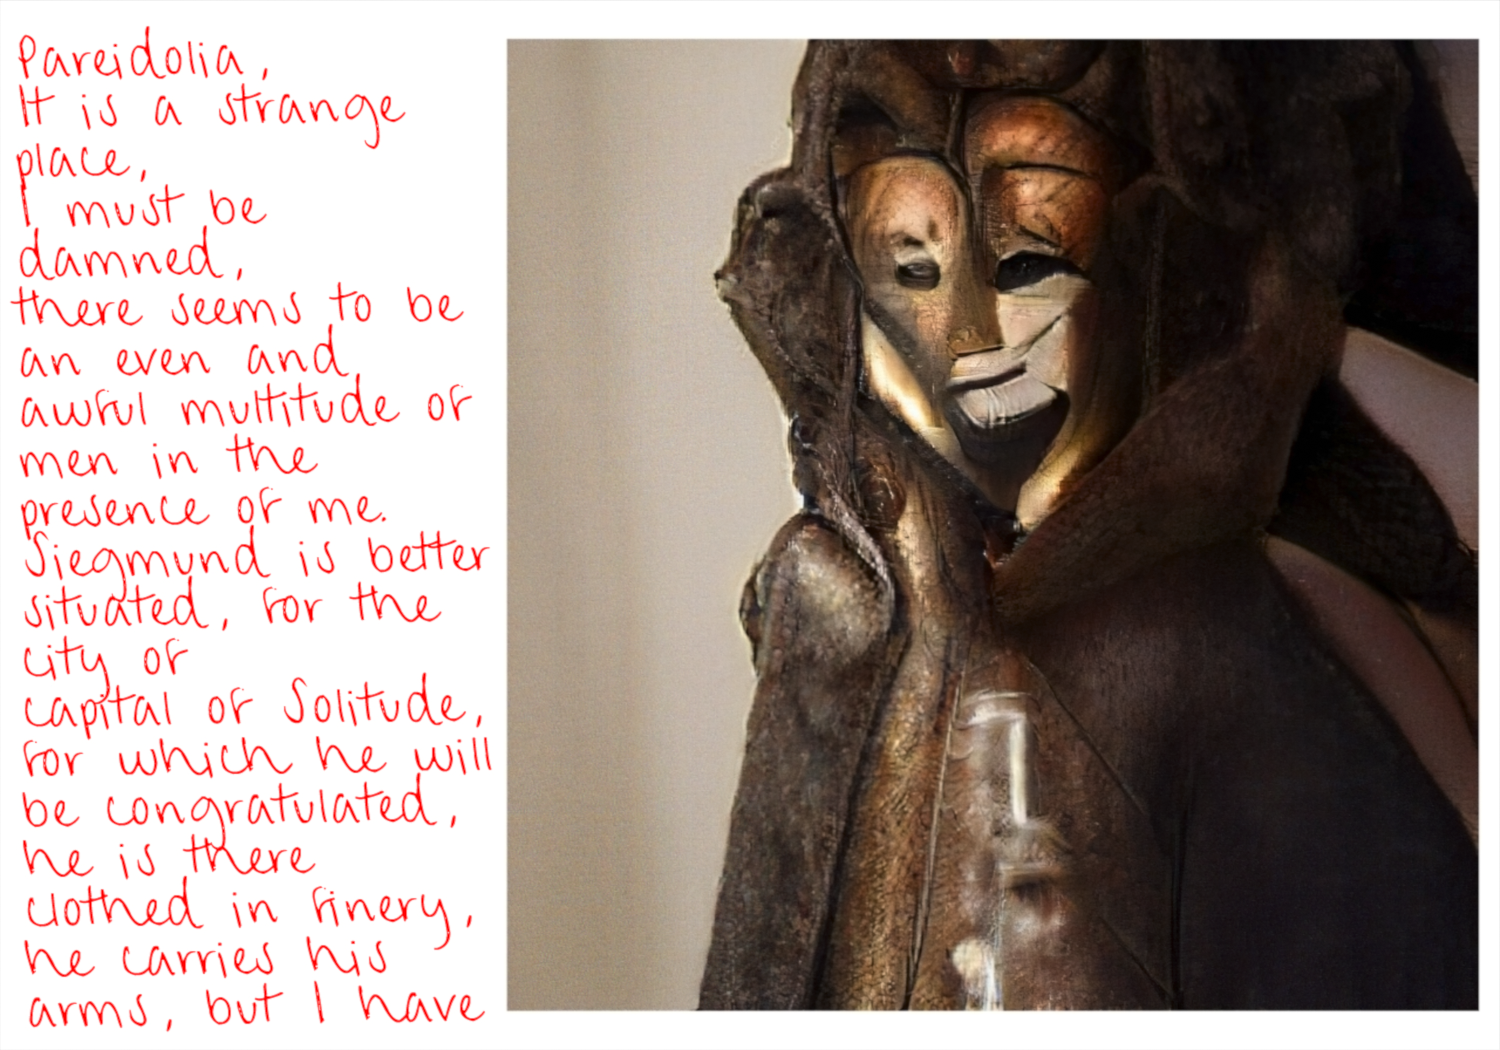 Pareidolia,
It is a strange
place,
I must be
damned,
there seems to be
an even and
awful multitude of
men in the
presence of me.
Siegmund is better
situated, for the
city of
capital of Solitude,
for which he will
be congratulated,
he is there
clothed in finery,
he carries his
arms, but I have